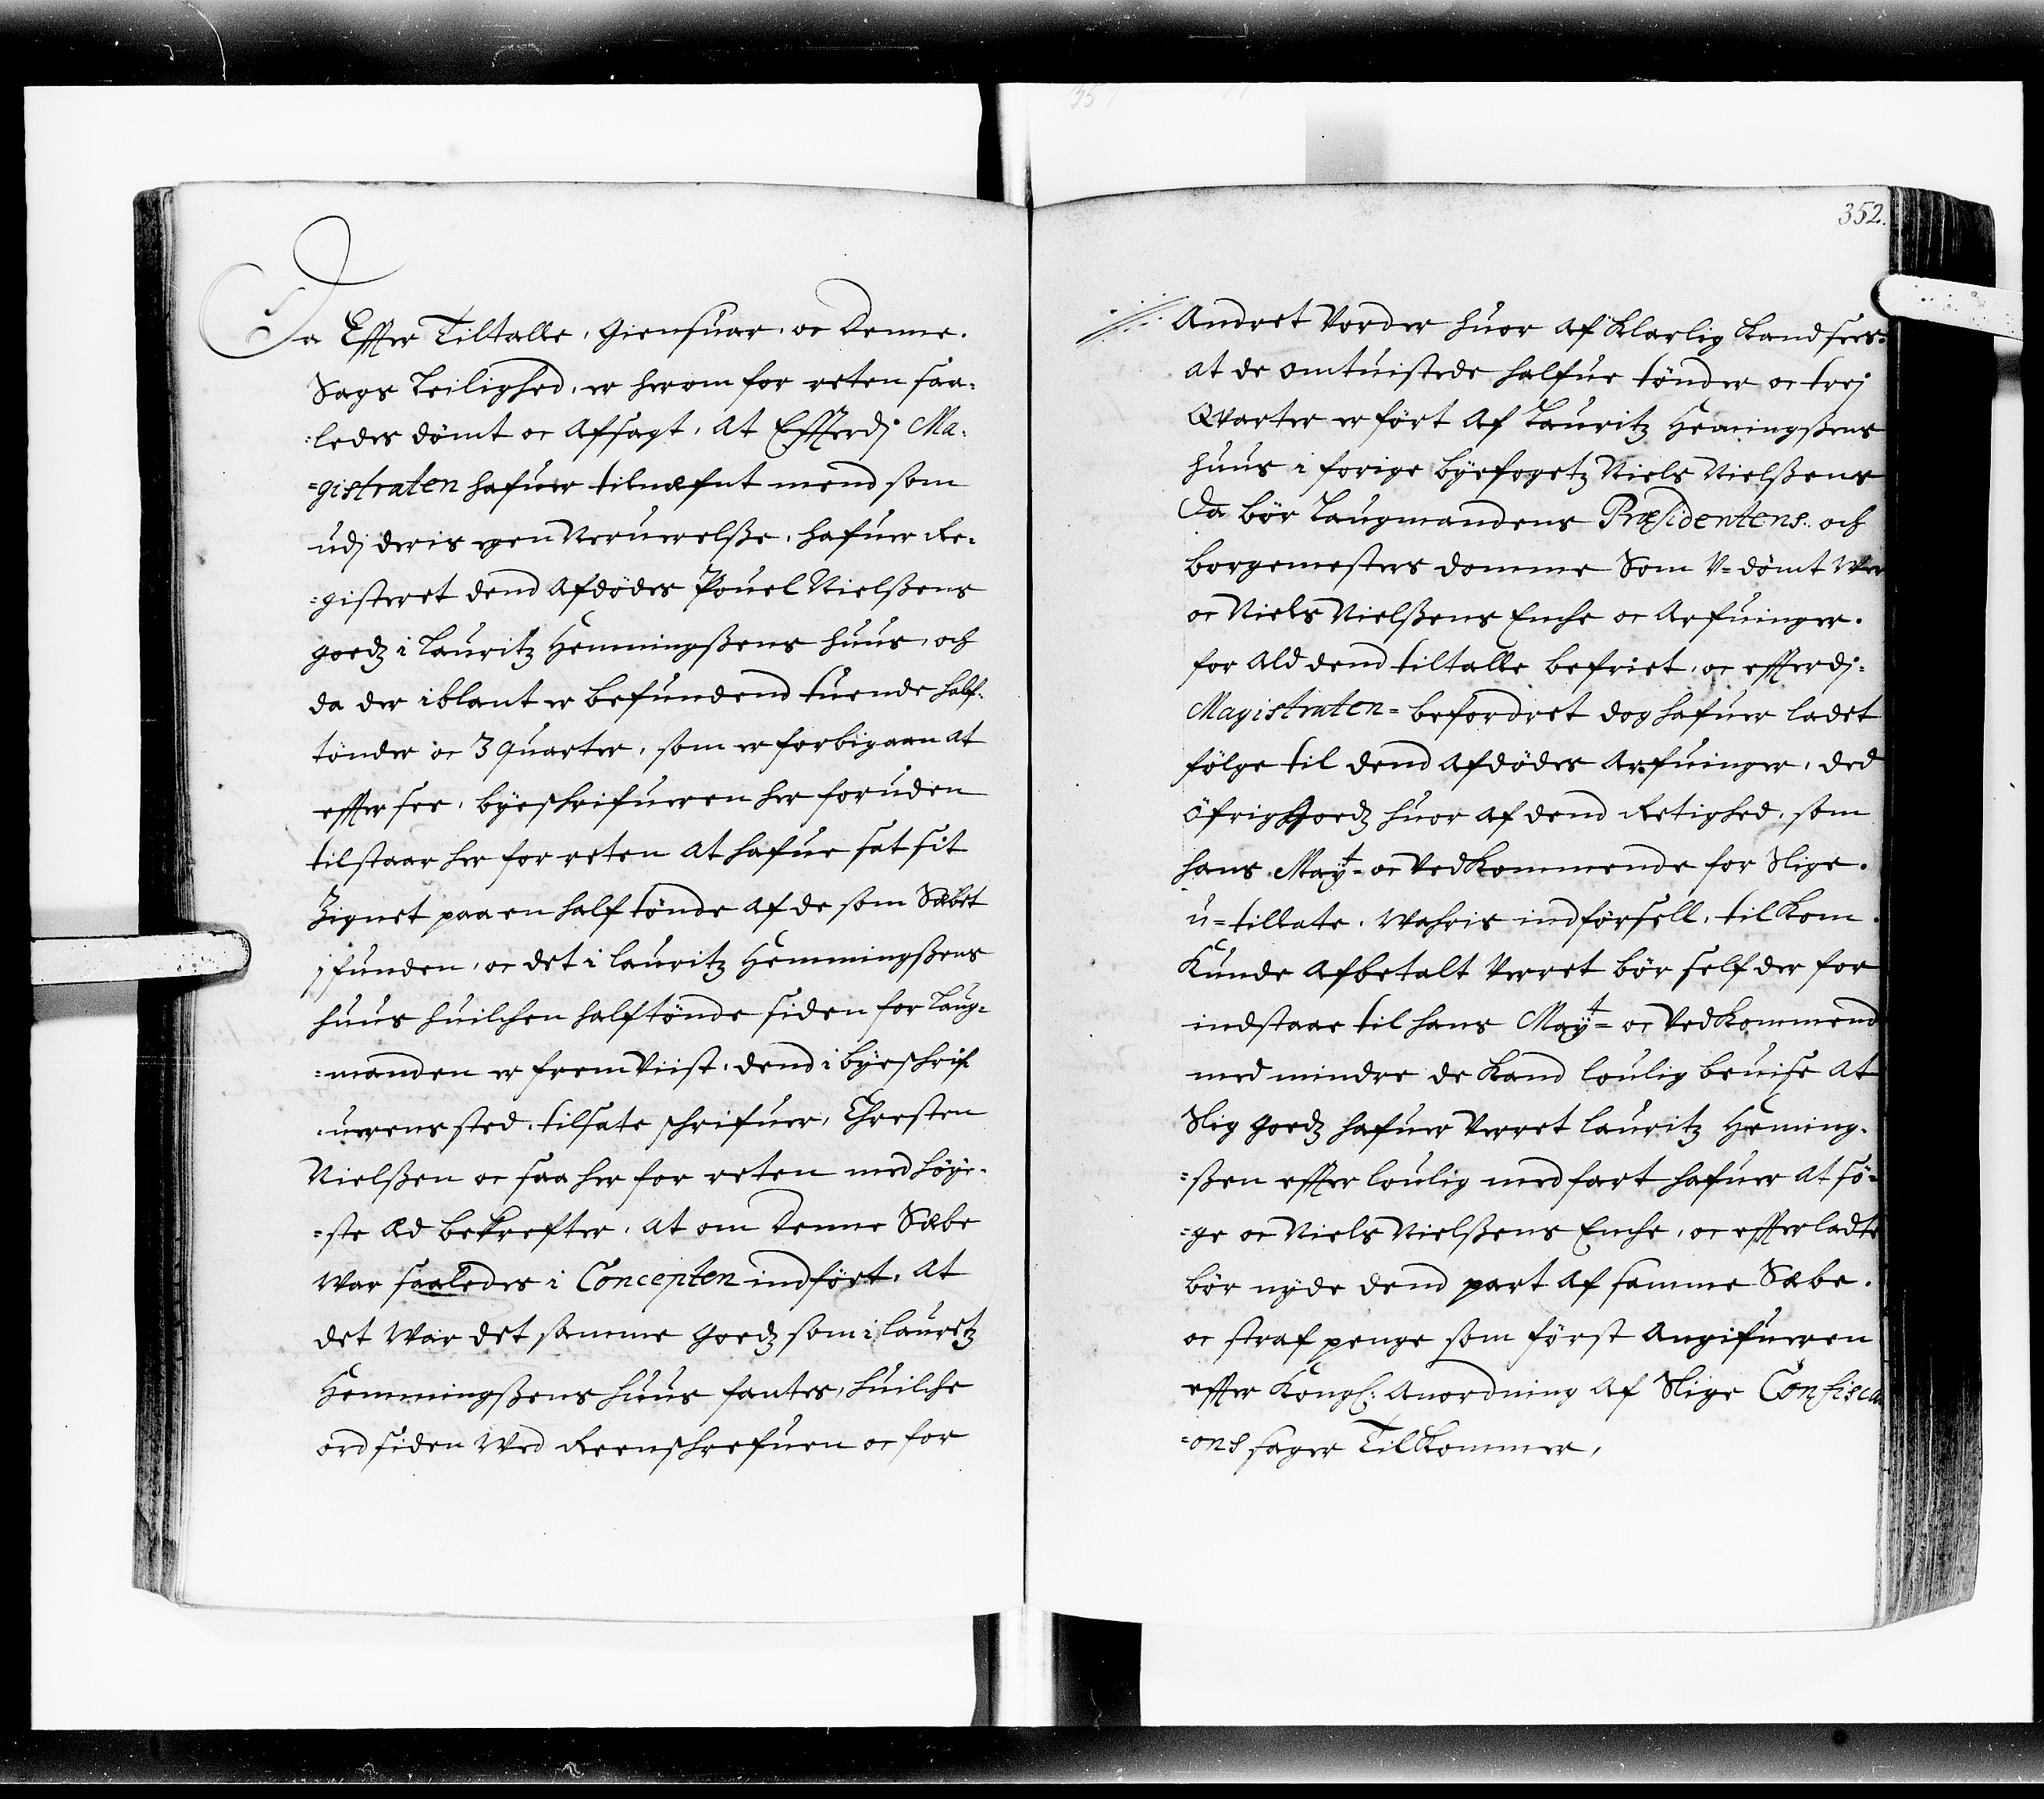 Da Effter Tiltalle, Giensuar, oc denne
Sags Leilighed, er herom for reten saa-
=ledes dömt oc Afsagt, At Effterdj Ma-
=gistraten hafuer tilnæfnt mend som
udj deris egen Neruerelße, hafuer Re-
=gisteret dend Afdödes Pouel Nielßens
goedz i Lauritz Hemmingßens huus, och
da der iblant er befundend tuende half-
tönder oc 3 quarter, som er forbigaan at
effter see, byeschrifueren her foruden
tilstaar her for reten at hafue sat sit
Zignet paa en half tönde af de som Sæbet
 j funden, oc det i Lauritz Hemmingßens
huus huilchen halftönde siden for Laug-
=manden er frem Viist, dend i byeschrif
=uerens sted, tilsate schrifuer, Chresten
Nielßen oc saa her for reten med höye-
=ste Æd bekrefter, at om denne Sæbe
War saaledes i Concepten indfört, at
det War det samme goedz som i Lauretz
Hemmingßens huus fantes, huilche
ord siden Wed Reenschrefuen oc for
352.
Andret Vorder huor af klarlig kand sees
at de omtuistede halfue tönder oc trej
Qvarter er fört af Lauritz Hemingßens
huus i forige byefogetz Niels Nielßens
Da bör Laugmandens Præsidentens och
borgemesters domme Som V=dömt Wer
oc Niels Nielßens Enche oc Arfuinger
for Ald dend tiltalle befriet, oc effterdj
Magistraten= befordret dog hafuer ladet
fölge til dend afdödes Arfuinger, ded
öfrig goedz huor af dend Retighed, som
hans Mayt= oc Vedkommende for Slige
u=tillate, Wahris indförsell, tilkom
kunde afbetalt Verret bör self der for
indstaae til hans Mayt= oc Vedkommend
med mindre de kand loulig beuise at
Slig goedz hafuer Verret Lauritz Heming-
=ßen effter loulig medfart hafuer at sö-
=ge oc Niels Nielßens Enche, oc effterladte
bör nyde dend part af samme Sæbe
oc straf penge som först Angifueren
effter Kongl: Anordning af Slige Confisca
=ons sager Tilkommer,